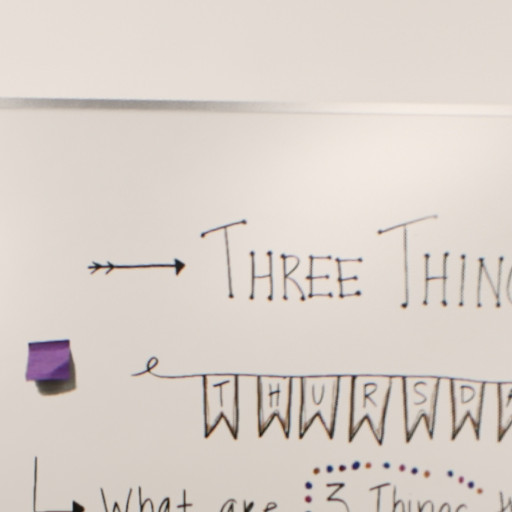 THREE THING
THURSDA
What are 3 Things